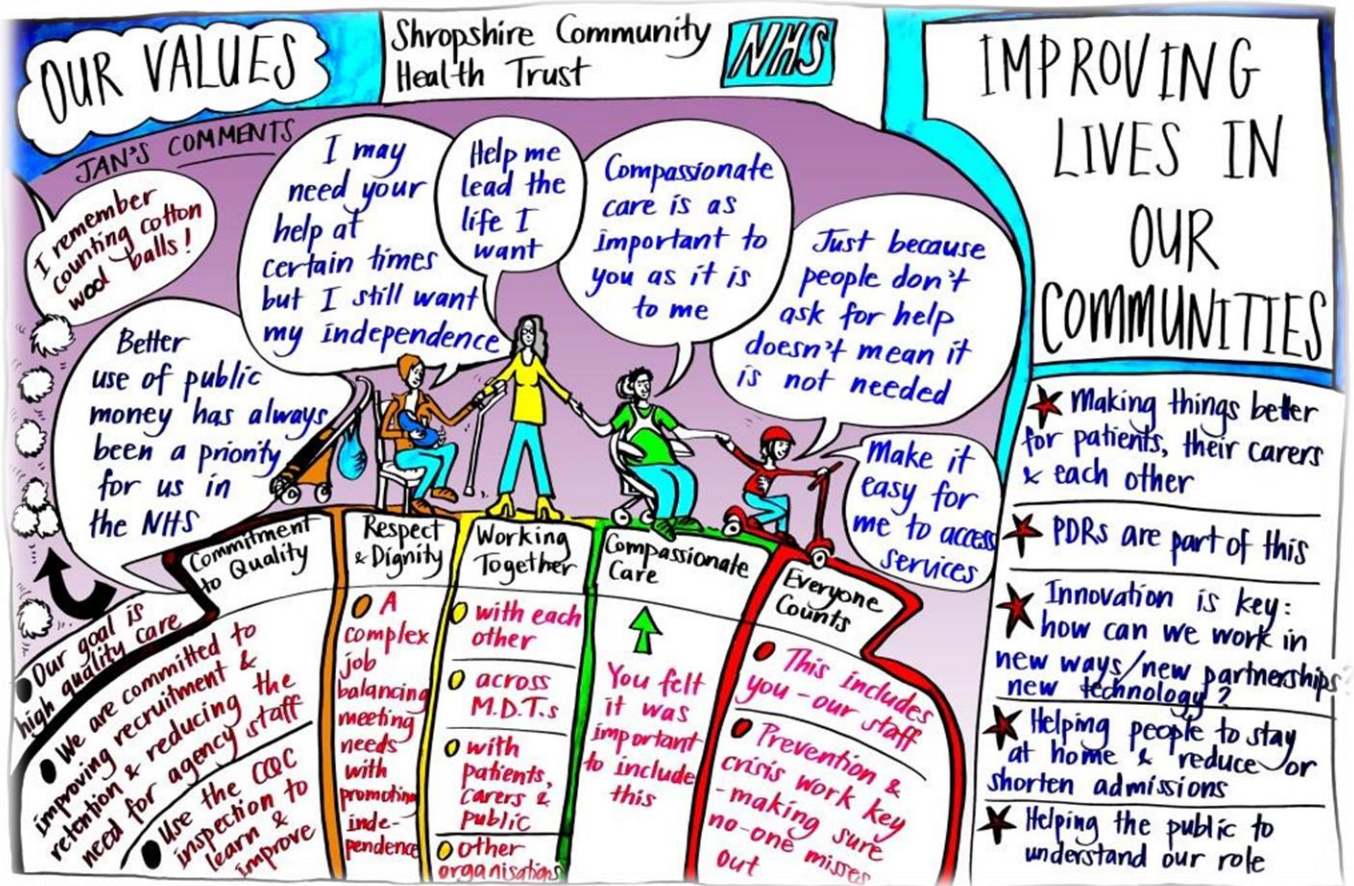 OUR VALUES
Shropshire Community
Health Trust
NHS
JAN'S COMMENTS
I remember
counting cotton
wool balls!
Better
use of public
money has always
been a priority
for us in
the NHS
I may
need your
help at
certain times
but I still want
my independence
Help me
lead the
life I
want
Compassionate
care is as
important to
you as it is
to me
Just because
people don't
ask for help
doesn't mean it
is not needed
Make it
easy for
me to access
services
Our goal is
high quality care
Commitment
to Quality
We are committed to
improving recruitment &
retention & reducing the
need for agency staff
Use the CQC
inspection to
learn &
improve
Respect
& Dignity
A
complex
job
balancing
meeting
needs
with
promoting
inde-
pendence
Working
Together
with each
other
across
M.D.T.s
with
patients,
carers &
public
other
organisations
Compassionate
Care
You felt
it was
important
to include
this
Everyone
Counts
This includes
you - our staff
Prevention &
crisis work key
- making sure
no-one misses
out
IMPROVING
LIVES IN
OUR
COMMUNITIES
Making things better
for patients, their carers
& each other
PDRs are part of this
Innovation is key:
how can we work in
new ways/new partnerships
new technology?
Helping people to stay
at home & reduce or
shorten admissions
Helping the public to
understand our role